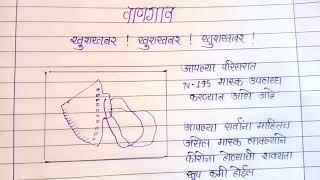 खुशखबर ! खुशखबर ! खुशखबर !
आपल्या परिसरात
N-195 मास्क उपलब्ध
करण्यात आले आहे
आपल्या सर्वांना माहितच
असेल मास्क लावल्याने
कोरोना होण्याची शक्यता
खूप कमी होईल